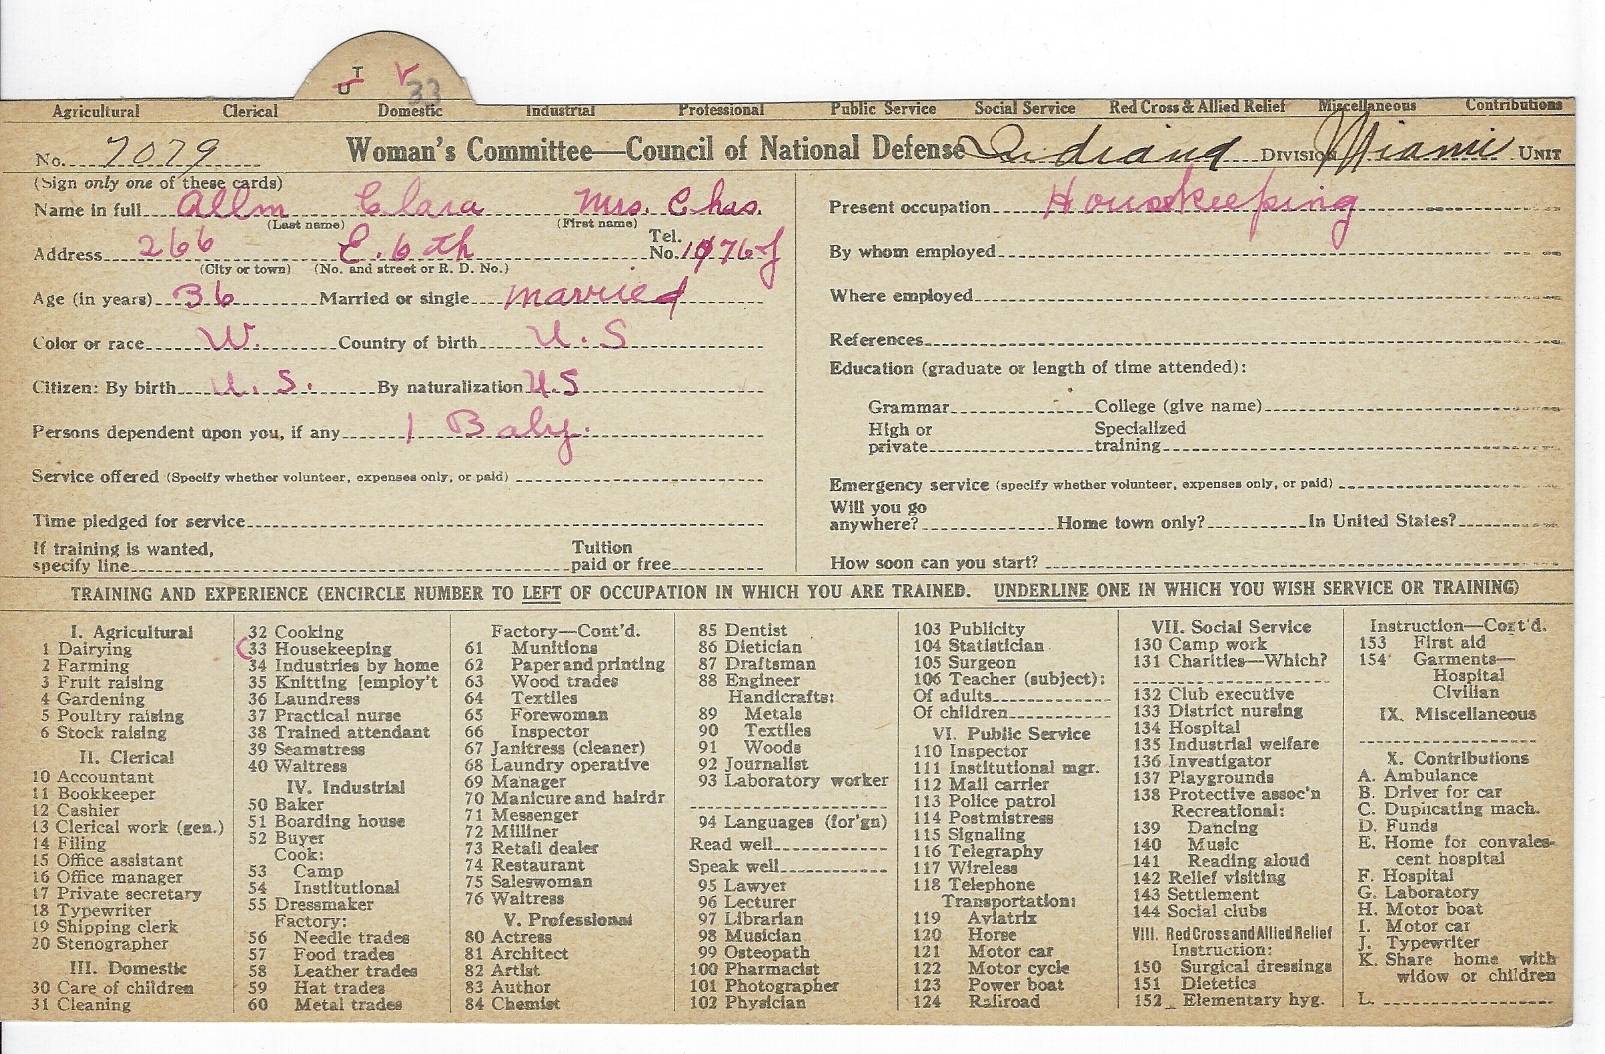 T
U
33
Agricultural Clerical Domestic Industrial Professional Public Service Social Service Red Cross & Allied Relief Miscellaneous Contributions
No. 7079 Woman's Committee—Council of National Defense Indiana DIVISION Miami UNIT
(Sign only one of these cards)
Name in full Allm Clara Mrs. Chas.
(Last name) (First name)
Address 266 E. 6th Tel. No.
(City or town) (No. and street or R. D. No.)
Age (in years) 36 Married or single married
Color or race W. Country of birth U.S
Citizen: By birth U.S. By naturalization U.S
Persons dependent upon you, if any 1 Baby.
Service offered (Specify whether volunteer, expenses only, or paid)
Time pledged for service
If training is wanted, specify line Tuition paid or free
Present occupation Housekeeping
By whom employed
Where employed
References
Education (graduate or length of time attended):
Grammar College (give name)
High or private Specialized training
Emergency service (specify whether volunteer, expenses only, or paid)
Will you go anywhere? Home town only? In United States?
How soon can you start?
TRAINING AND EXPERIENCE (ENCIRCLE NUMBER TO LEFT OF OCCUPATION IN WHICH YOU ARE TRAINED. UNDERLINE ONE IN WHICH YOU WISH SERVICE OR TRAINING)
I. Agricultural
1 Dairying
2 Farming
3 Fruit raising
4 Gardening
5 Poultry raising
6 Stock raising
II. Clerical
10 Accountant
11 Bookkeeper
12 Cashier
13 Clerical work (gen.)
14 Filing
15 Office assistant
16 Office manager
17 Private secretary
18 Typewriter
19 Shipping clerk
20 Stenographer
III. Domestic
30 Care of children
31 Cleaning
32 Cooking
33 Housekeeping
34 Industries by home
35 Knitting [employ't
36 Laundress
37 Practical nurse
38 Trained attendant
39 Seamstress
40 Waitress
IV. Industrial
50 Baker
51 Boarding house
52 Buyer
Cook:
53 Camp
54 Institutional
55 Dressmaker
Factory:
56 Needle trades
57 Food trades
58 Leather trades
59 Hat trades
60 Metal trades
Factory—Cont'd.
61 Munitions
62 Paper and printing
63 Wood trades
64 Textiles
65 Forewoman
66 Inspector
67 Janitress (cleaner)
68 Laundry operative
69 Manager
70 Manicure and hairdr
71 Messenger
72 Milliner
73 Retail dealer
74 Restaurant
75 Saleswoman
76 Waitress
V. Professional
80 Actress
81 Architect
82 Artist
83 Author
84 Chemist
85 Dentist
86 Dietician
87 Draftsman
88 Engineer
Handicrafts:
89 Metals
90 Textiles
91 Woods
92 Journalist
93 Laboratory worker
94 Languages (for'gn)
Read well
Speak well
95 Lawyer
96 Lecturer
97 Librarian
98 Musician
99 Osteopath
100 Pharmacist
101 Photographer
102 Physician
103 Publicity
104 Statistician
105 Surgeon
106 Teacher (subject):
Of adults
Of children
VI. Public Service
110 Inspector
111 Institutional mgr.
112 Mail carrier
113 Police patrol
114 Postmistress
115 Signaling
116 Telegraphy
117 Wireless
118 Telephone
Transportation:
119 Aviatrix
120 Horse
121 Motor car
122 Motor cycle
123 Power boat
124 Railroad
VII. Social Service
130 Camp work
131 Charities—Which?
132 Club executive
133 District nursing
134 Hospital
135 Industrial welfare
136 Investigator
137 Playgrounds
138 Protective assoc'n
Recreational:
139 Dancing
140 Music
141 Reading aloud
142 Relief visiting
143 Settlement
144 Social clubs
VIII. Red Cross and Allied Relief
Instruction:
150 Surgical dressings
151 Dietetics
152 Elementary hyg.
Instruction—Cont'd.
153 First aid
154 Garments—
Hospital
Civilian
IX. Miscellaneous
X. Contributions
A. Ambulance
B. Driver for car
C. Duplicating mach.
D. Funds
E. Home for convales-
cent hospital
F. Hospital
G. Laboratory
H. Motor boat
I. Motor car
J. Typewriter
K. Share home with
widow or children
L.